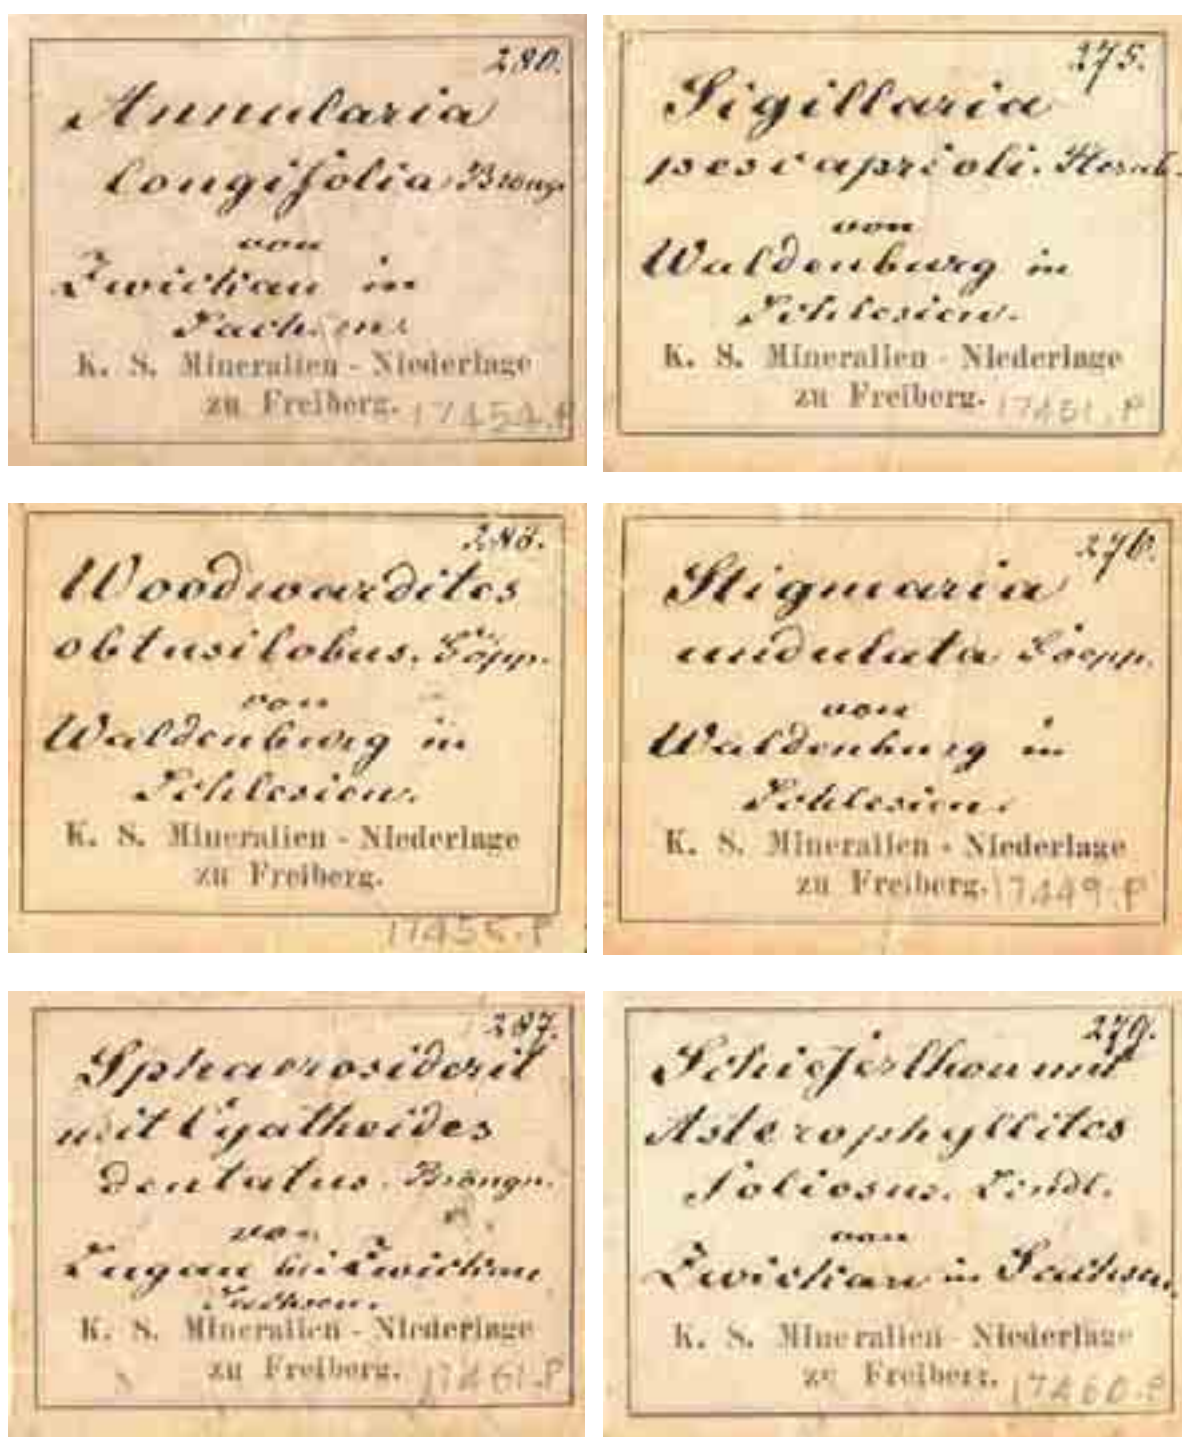 280.
Annularia
longifolia Brong.
von
Zwickau in
Sachsen.
K. S. Mineralien - Niederlage
zu Freiberg. 17454.P
275.
Sigillaria
pescaprioli. Sternb.
von
Waldenburg in
Schlesien.
K. S. Mineralien - Niederlage
zu Freiberg. 17451.P
Woodwardites
obtusilobus. Göpp.
von
Waldenburg in
Schlesien.
K. S. Mineralien - Niederlage
zu Freiberg.
17455.P
276.
Stigmaria
undulata Goepp.
von
Waldenburg in
Schlesien.
K. S. Mineralien - Niederlage
zu Freiberg. 17449.P
287.
Sphaerosiderit
mit Cyatheides
dentatus. Brongn.
von
Lugau bei Zwickau
Sachsen.
K. S. Mineralien - Niederlage
zu Freiberg. 17461.P
279.
Schieferthon mit
Asterophyllites
foliosus. Lindl.
von
Zwickau in Sachsen.
K. S. Mineralien - Niederlage
zu Freiberg. 17460.P